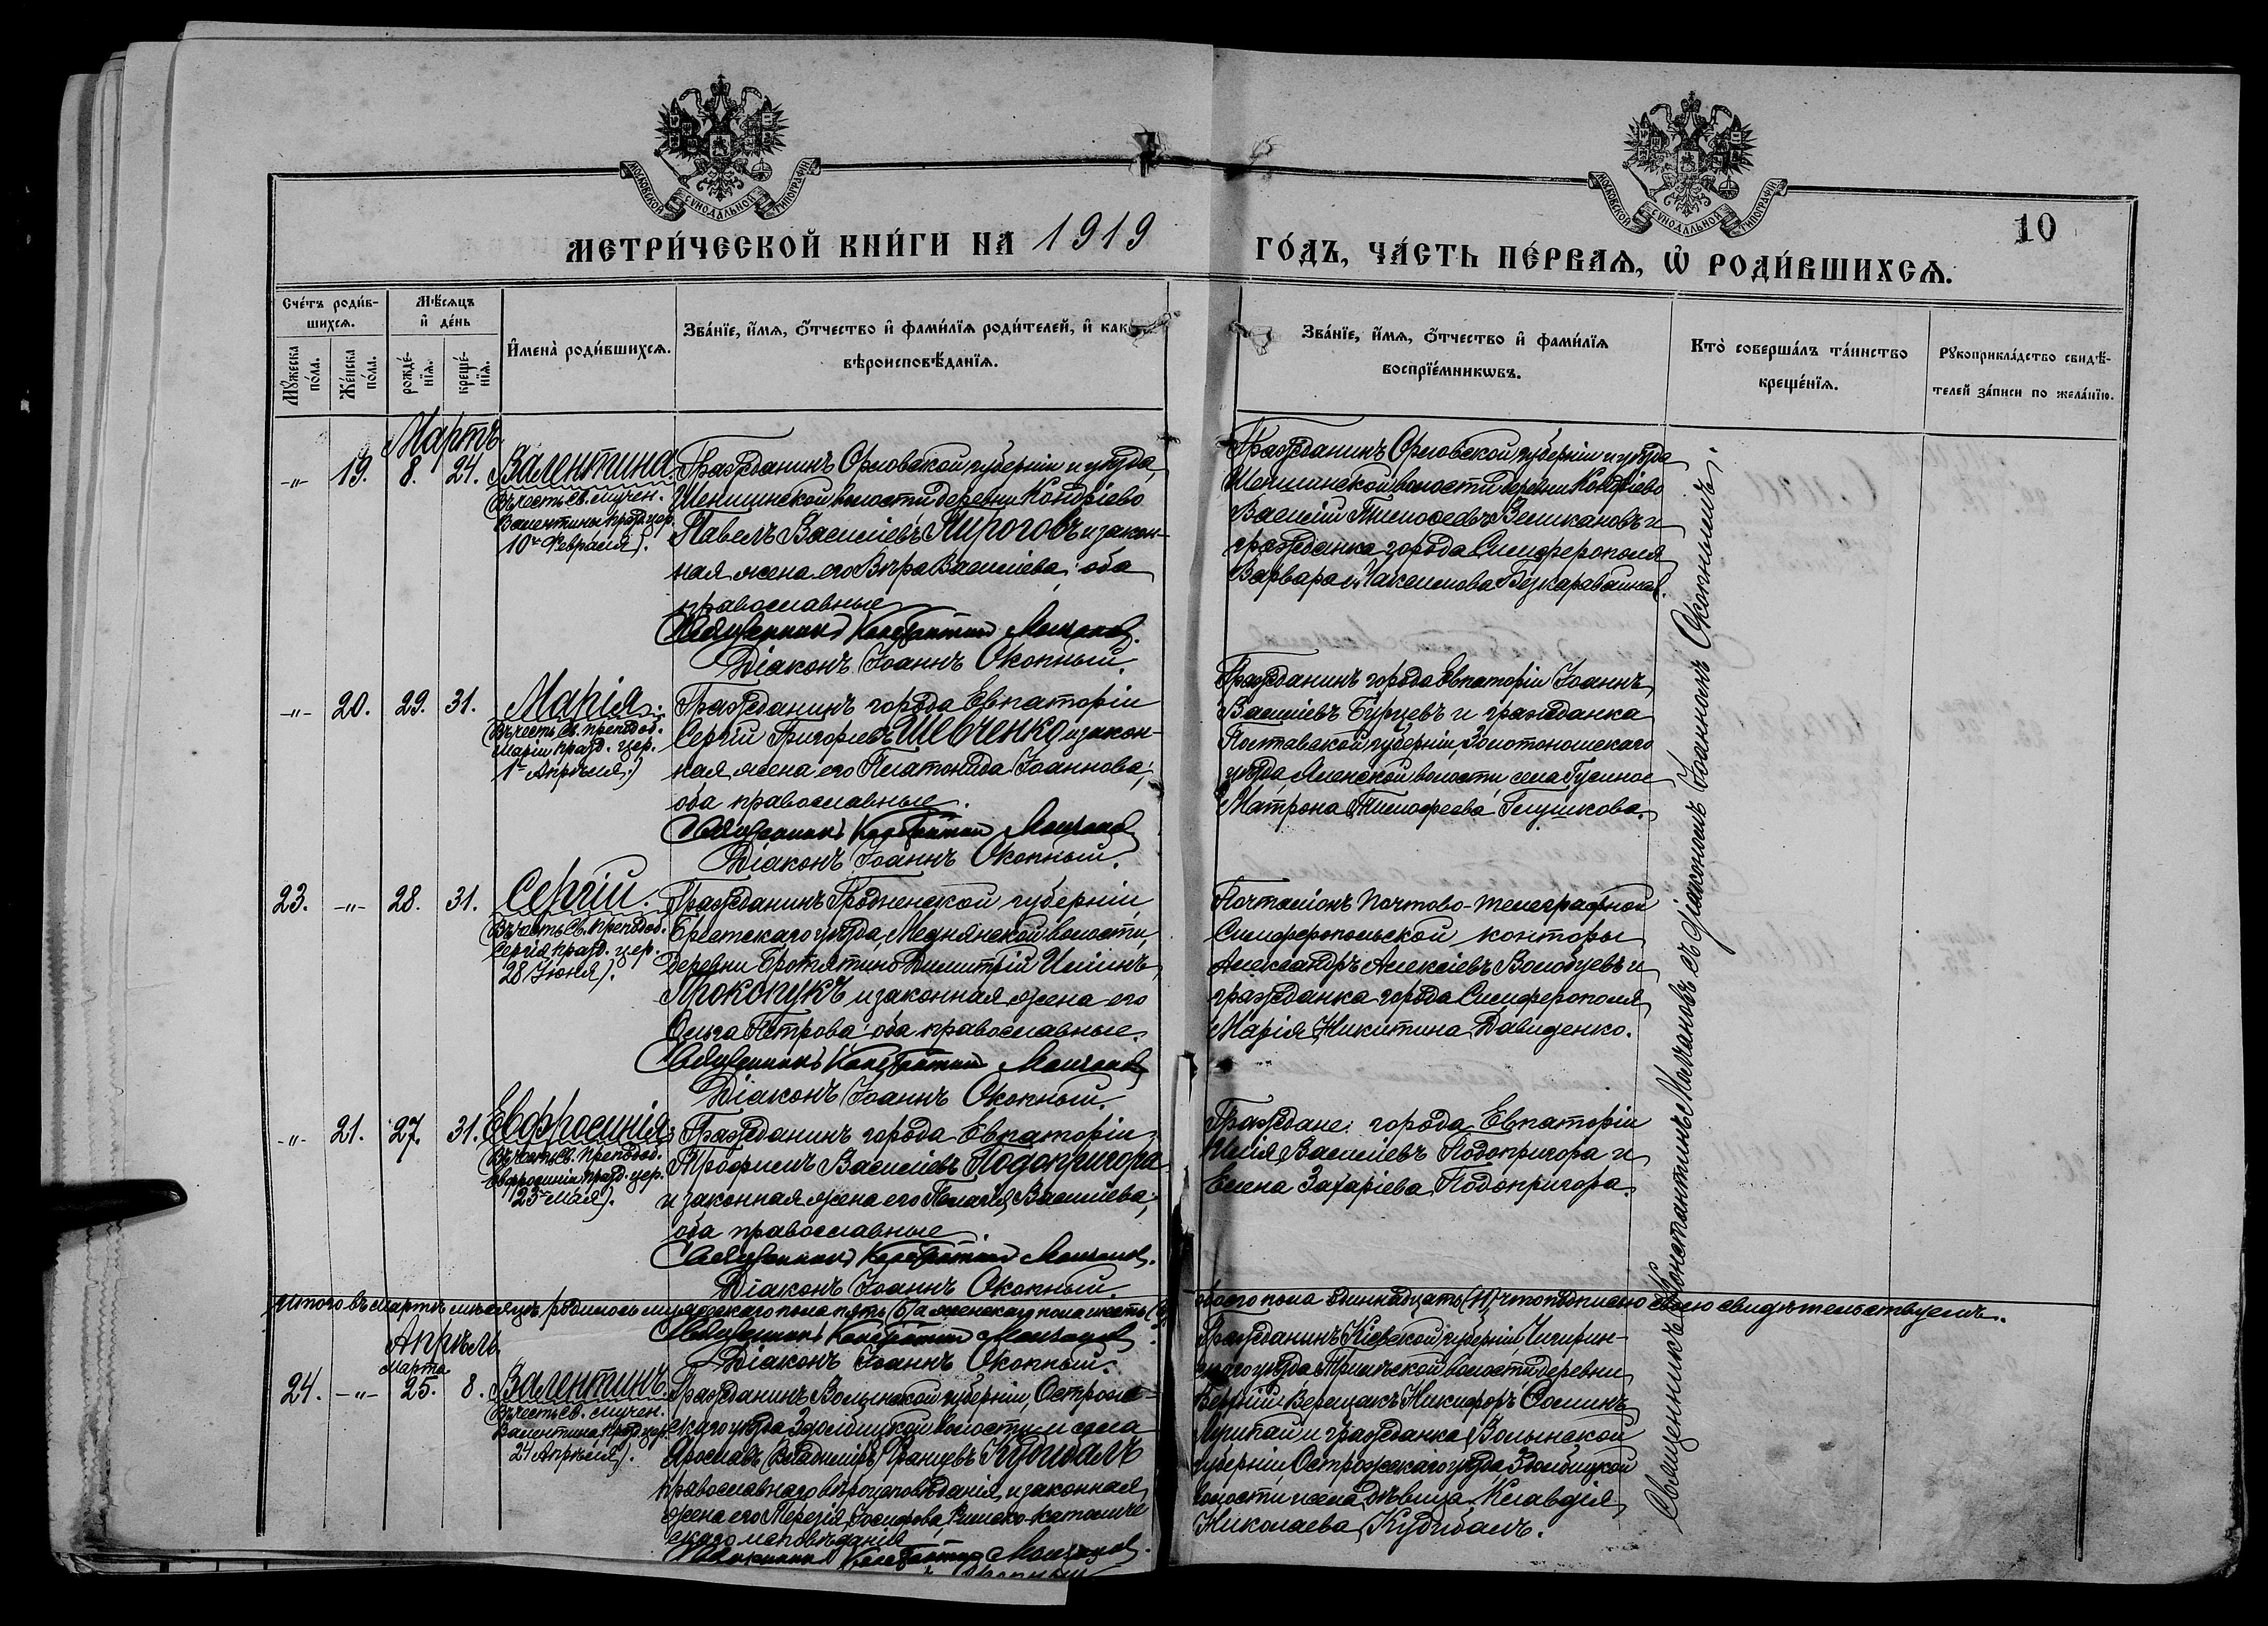 МОСКОВСКОЙ СѴНОДАЛЬНОЙ ТИПОГРАФІИ
МОСКОВСКОЙ СѴНОДАЛЬНОЙ ТИПОГРАФІИ
10
МЕТРИ́ЧЕСКОЙ КНИ́ГИ НА 1919
ГО́ДЪ, ЧА́СТЬ ПЕ́РВАѦ, Ѽ РОДИ́ВШИХСѦ.
Сче́тъ роди́в-
шихсѧ.
Мѣ́сѧцъ
и҆ де́нь
Мꙋ́жеска
по́ла.
Же́нска
по́ла.
рожде́-
нїѧ.
креще́-
нїѧ.
И҆мена̀ роди́вшихсѧ.
Зва́нїе, и҆́мѧ, ѻ҆́тчество и҆ фами́лїѧ роди́телей, и҆ как
вѣроисповѣ́данїѧ.
Зва́нїе, и҆́мѧ, ѻ҆́тчество и҆ фами́лїѧ
воспрїе́мникѡвъ.
Кто̀ соверша́лъ та́инство
креще́нїѧ.
Рꙋкоприкла́дство свидѣ́-
телей за́писи по жела́нїю.
Мартъ
-„- 19. 8. 24. Валентина.
Въ честь св. мучен.
Валентины празд. цер.
10го Февраля).
Гражданинъ Орловской губерніи и уѣзда,
волости деревни Кондріево
Павелъ Василіевъ Пироговъ и закон-
ная жена его Вѣра Василіева; оба
православные
Священникъ Константинъ Молчановъ.
Діаконъ Іоаннъ Окопный.
Гражданинъ Орловской губерніи и уѣзда
волости деревни Кондріево
Василій Тимофеевъ Великановъ и
гражданка города Симферополя
Варвара Максимова
-„- 20. 29. 31. Марія.
Въ честь св. преподоб.
Маріи празд. цер.
1го Апрѣля.)
Гражданинъ города Евпаторіи
Сергій Григорьевъ Шевченко и закон-
ная жена его Платонида Іоаннова;
оба православные.
Священникъ Константинъ Молчановъ
Діаконъ Іоаннъ Окопный.
Гражданинъ города Евпаторіи Іоаннъ
Василіевъ Бурцевъ и гражданка
Полтавской губерніи, Золотоношскаго
уѣзда, волости села Гусиное
Матрона Тимофеева Глушкова.
23. -„- 28. 31. Сергій.
Въ честь св. преподоб.
Сергія празд. цер.
28 Іюня).
Гражданинъ Гродненской губерніи,
Брестскаго уѣзда, Меднянской волости,
деревни Димитрій Иліинъ
Прокопукъ и законная жена его
Ольга Петрова; оба православные.
Священникъ Константинъ Молчановъ
Діаконъ Іоаннъ Окопный.
Почталіонъ Почтово-телеграфной
Симферопольской конторы
Александръ Алексіевъ Волобуевъ и
гражданка города Симферополя
Марія Никитина Давиденко.
-„- 21. 27. 31. Евфросинія
Въ честь св. преподоб.
Евфросиніи празд. цер.
23го Мая).
Гражданинъ города Евпаторіи
Трофимъ Василіевъ Подопригора
и законная жена его Пелагія Василіева;
оба православные
Священникъ Константинъ Молчановъ.
Діаконъ Іоаннъ Окопный.
Граждане города Евпаторіи
Илія Василіевъ Подопригора и
Елена Захаріева Подопригора.
Итого въ мартѣ мѣсяцѣ родилось мужескаго пола пять (5) а женскаго пола шесть (6)
обоего пола одиннадцать (11) что подписью своею свидѣтельствуемъ.
Священникъ Константинъ Молчановъ
Діаконъ Іоаннъ Окопный.
Апрѣль.
Марта
24. -„- 25. 8. Валентинъ.
Въ честь св. мучен.
Валентина празд. цер.
24 Апрѣля).
Гражданинъ Волынской губерніи, Острож-
скаго уѣзда Здолбицкой волости и села
Ярославъ (Владиміръ) Францевъ Кудибалъ
православнаго вѣроисповѣданія, и законная
жена его Терезія Іосифова, Римско-католиче
скаго исповѣданія
Священникъ Константинъ Молчановъ.
Гражданинъ Кіевской губерніи, Чигирин-
скаго уѣзда волости, деревни
Никифоръ
и гражданка Волынской
губерніи, Острожскаго уѣзда Здолбицкой
волости и села дѣвица Клавдія
Николаева Кудибалъ.
Священникъ Константинъ Молчановъ съ діакономъ Іоанномъ Окопнымъ.